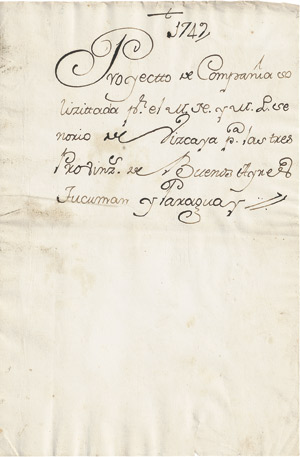 1742
Proyectto de Compañia so
lizitada pr. el M. N. y M. L. Se
ñorio de Vizcaya pa. las tres
Provinzs. de Buenos Ayres
Tucuman y Paraguay